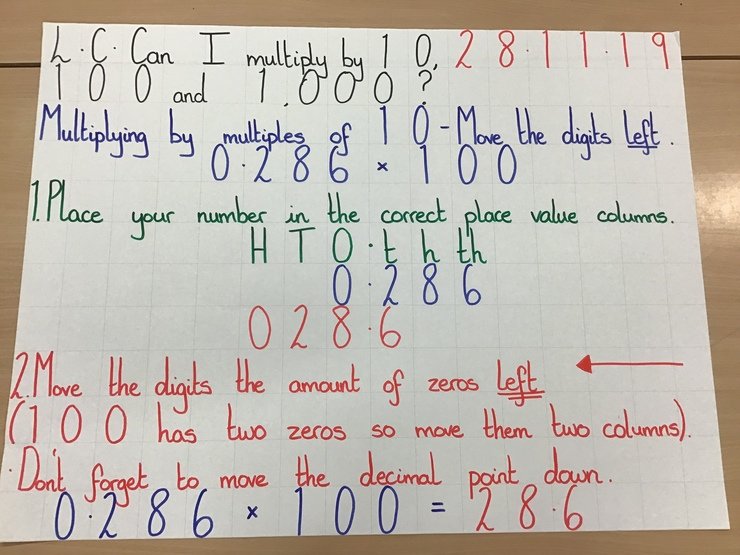 L.C. Can I multiply by 10, 28.11.19
100 and 1,000?
Multiplying by multiples of 10 - Move the digits left.
0.286 × 100
1. Place your number in the correct place value columns.
H T O . t h th
0.286
028.6
2. Move the digits the amount of zeros left
(100 has two zeros so move them two columns).
. Don't forget to move the decimal point down.
0.286 × 100 = 28.6